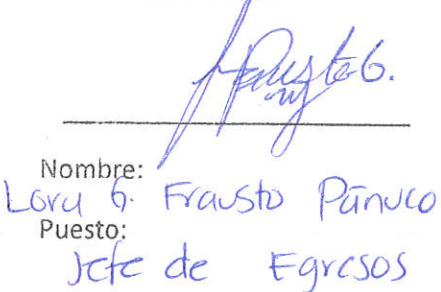 Nombre:
Lora G. Frausto Pánuco
Puesto:
Jefe de Egresos